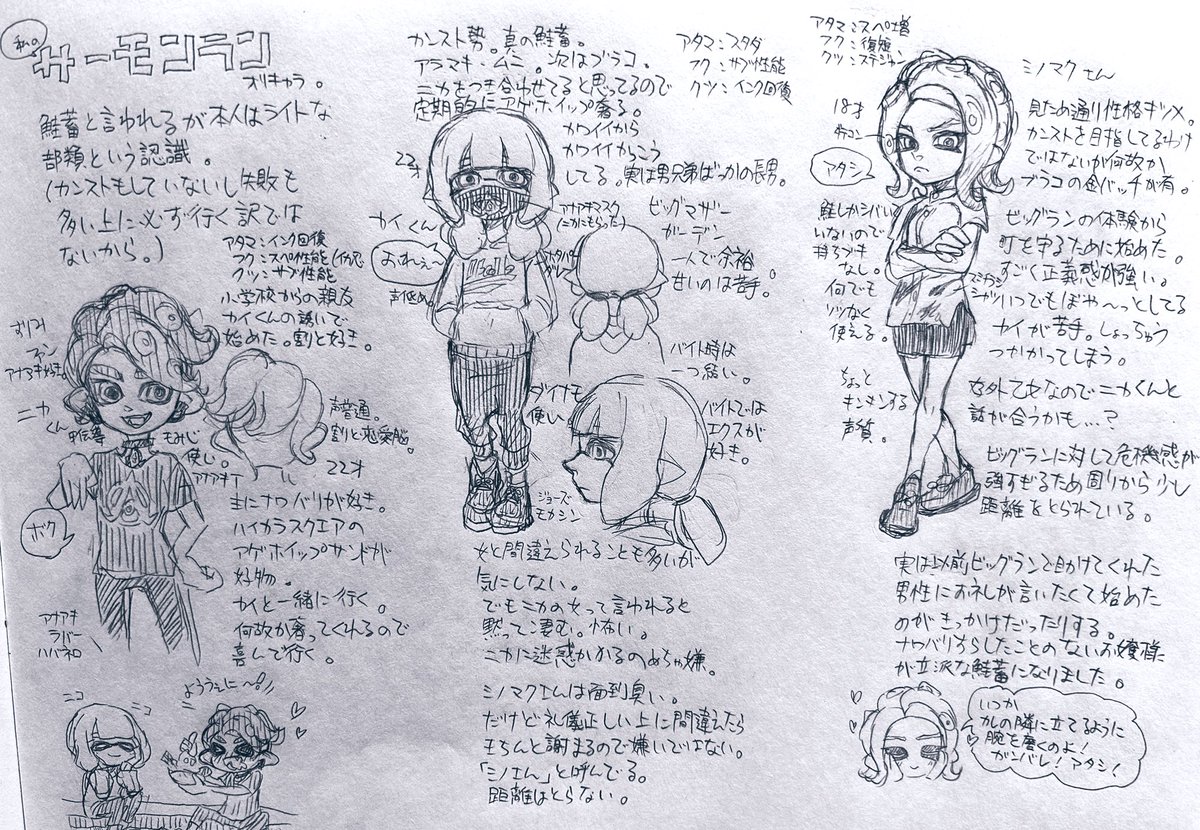 私の
サーモンラン
オリキャラ。
鮭畜と言われるが本人はライトな
部類という認識。
(カンストもしていないし失敗も
多い上に必ず行く訳では
ないから。)
アタマ:インク回復
フク:スペ性能
クツ:サブ性能
小学校からの親友
カイくんの誘いで
始めた。割と好き。
アナアキ好き。
ニカ
くん
もみじ
使い。
声普通。
割と恋愛脳。
22才
ボク
主にナワバリが好き。
ハイカラスクエアの
アゲホイップサンドが
好物。
カイと一緒に行く。
何故か奢ってくれるので
喜んで行く。
アナアキ
ラバー
ハバネロ
ニコ
ニコ
カンスト勢。真の鮭畜。
アラマキ・ムニ。次はブラコ。
ニカをつき合わせてると思ってるので
定期的にアゲホイップ奢る。
アタマ:スタダ
フク:サブ性能
クツ:インク回復
カワイイから
カワイイかっこう
してる。実は男兄弟ばっかの長男。
23才
カイくん
おれぇ〜
声低め
アナアキマスク
(ニカにもらった)
ビッグマザー
ガーデン
一人で余裕。
甘いのは苦手。
バイト時は
一つ結い。
ダイナモ
使い
バイトでは
エクスが
好き。
ジョーズ
モカシン
女と間違えられることも多いが
気にしない。
でもニカの女って言われると
黙って凄む。怖い。
ニカに迷惑かかるのめちゃ嫌。
ミノマクさんは面倒臭い。
だけど礼儀正しい上に間違えたら
きちんと謝まるので嫌いではない。
「ミノさん」と呼んでる。
距離はとらない。
アタマ:スペ増
フク:復短
クツ:ステジャン
ミノマクさん
18才
アタシ
見ため通り性格キツメ。
カンストを目指してるわけ
ではないが何故か
ブラコの金バッチが有。
鮭しかシバいて
いないので
持ちブキ
なし。
何でも
ソツなく
使える。
ビッグランの体験から
町を守るために始めた。
すごく正義感が強い。
いつでもぼや〜っとしてる
カイが苦手。しょっちゅう
つかかってしまう。
ちょっと
キンキンする
声質。
好外乙女なのでニカくんと
話が合うかも…?
ビッグランに対して危機感が
強すぎるため周りから少し
距離をとられている。
実は以前ビッグランで助けてくれた
男性にお礼が言いたくて始めた
のがきっかけだったりする。
ナワバリすらしたことのないお嬢様
が立派な鮭畜になりました。
いつか
カレの隣に立てるように
腕を磨くのよ!
ガンバレ!アタシ!